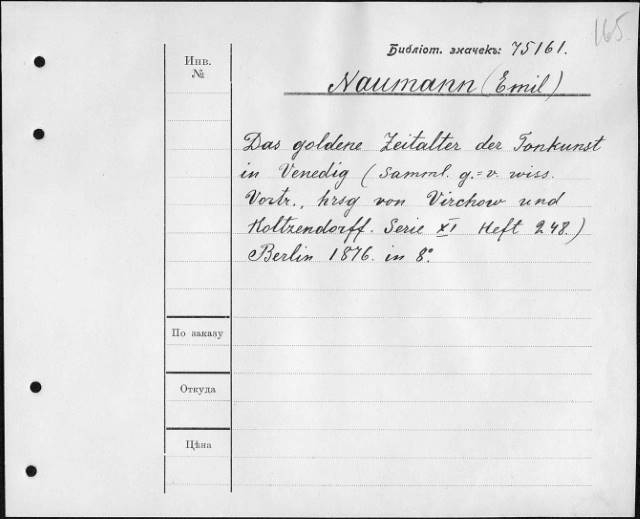 165.
Библіот. значекъ: 75161.
Инв.
№
Naumann (Emil)
Das goldene Zeitalter der Tonkunst
in Venedig (Samml. g.=v. wiss.
Vortr., hrsg von Virchow und
Holtzendorff. Serie XI Heft 248.)
Berlin 1876. in 8°.
По заказу
Откуда
Цѣна